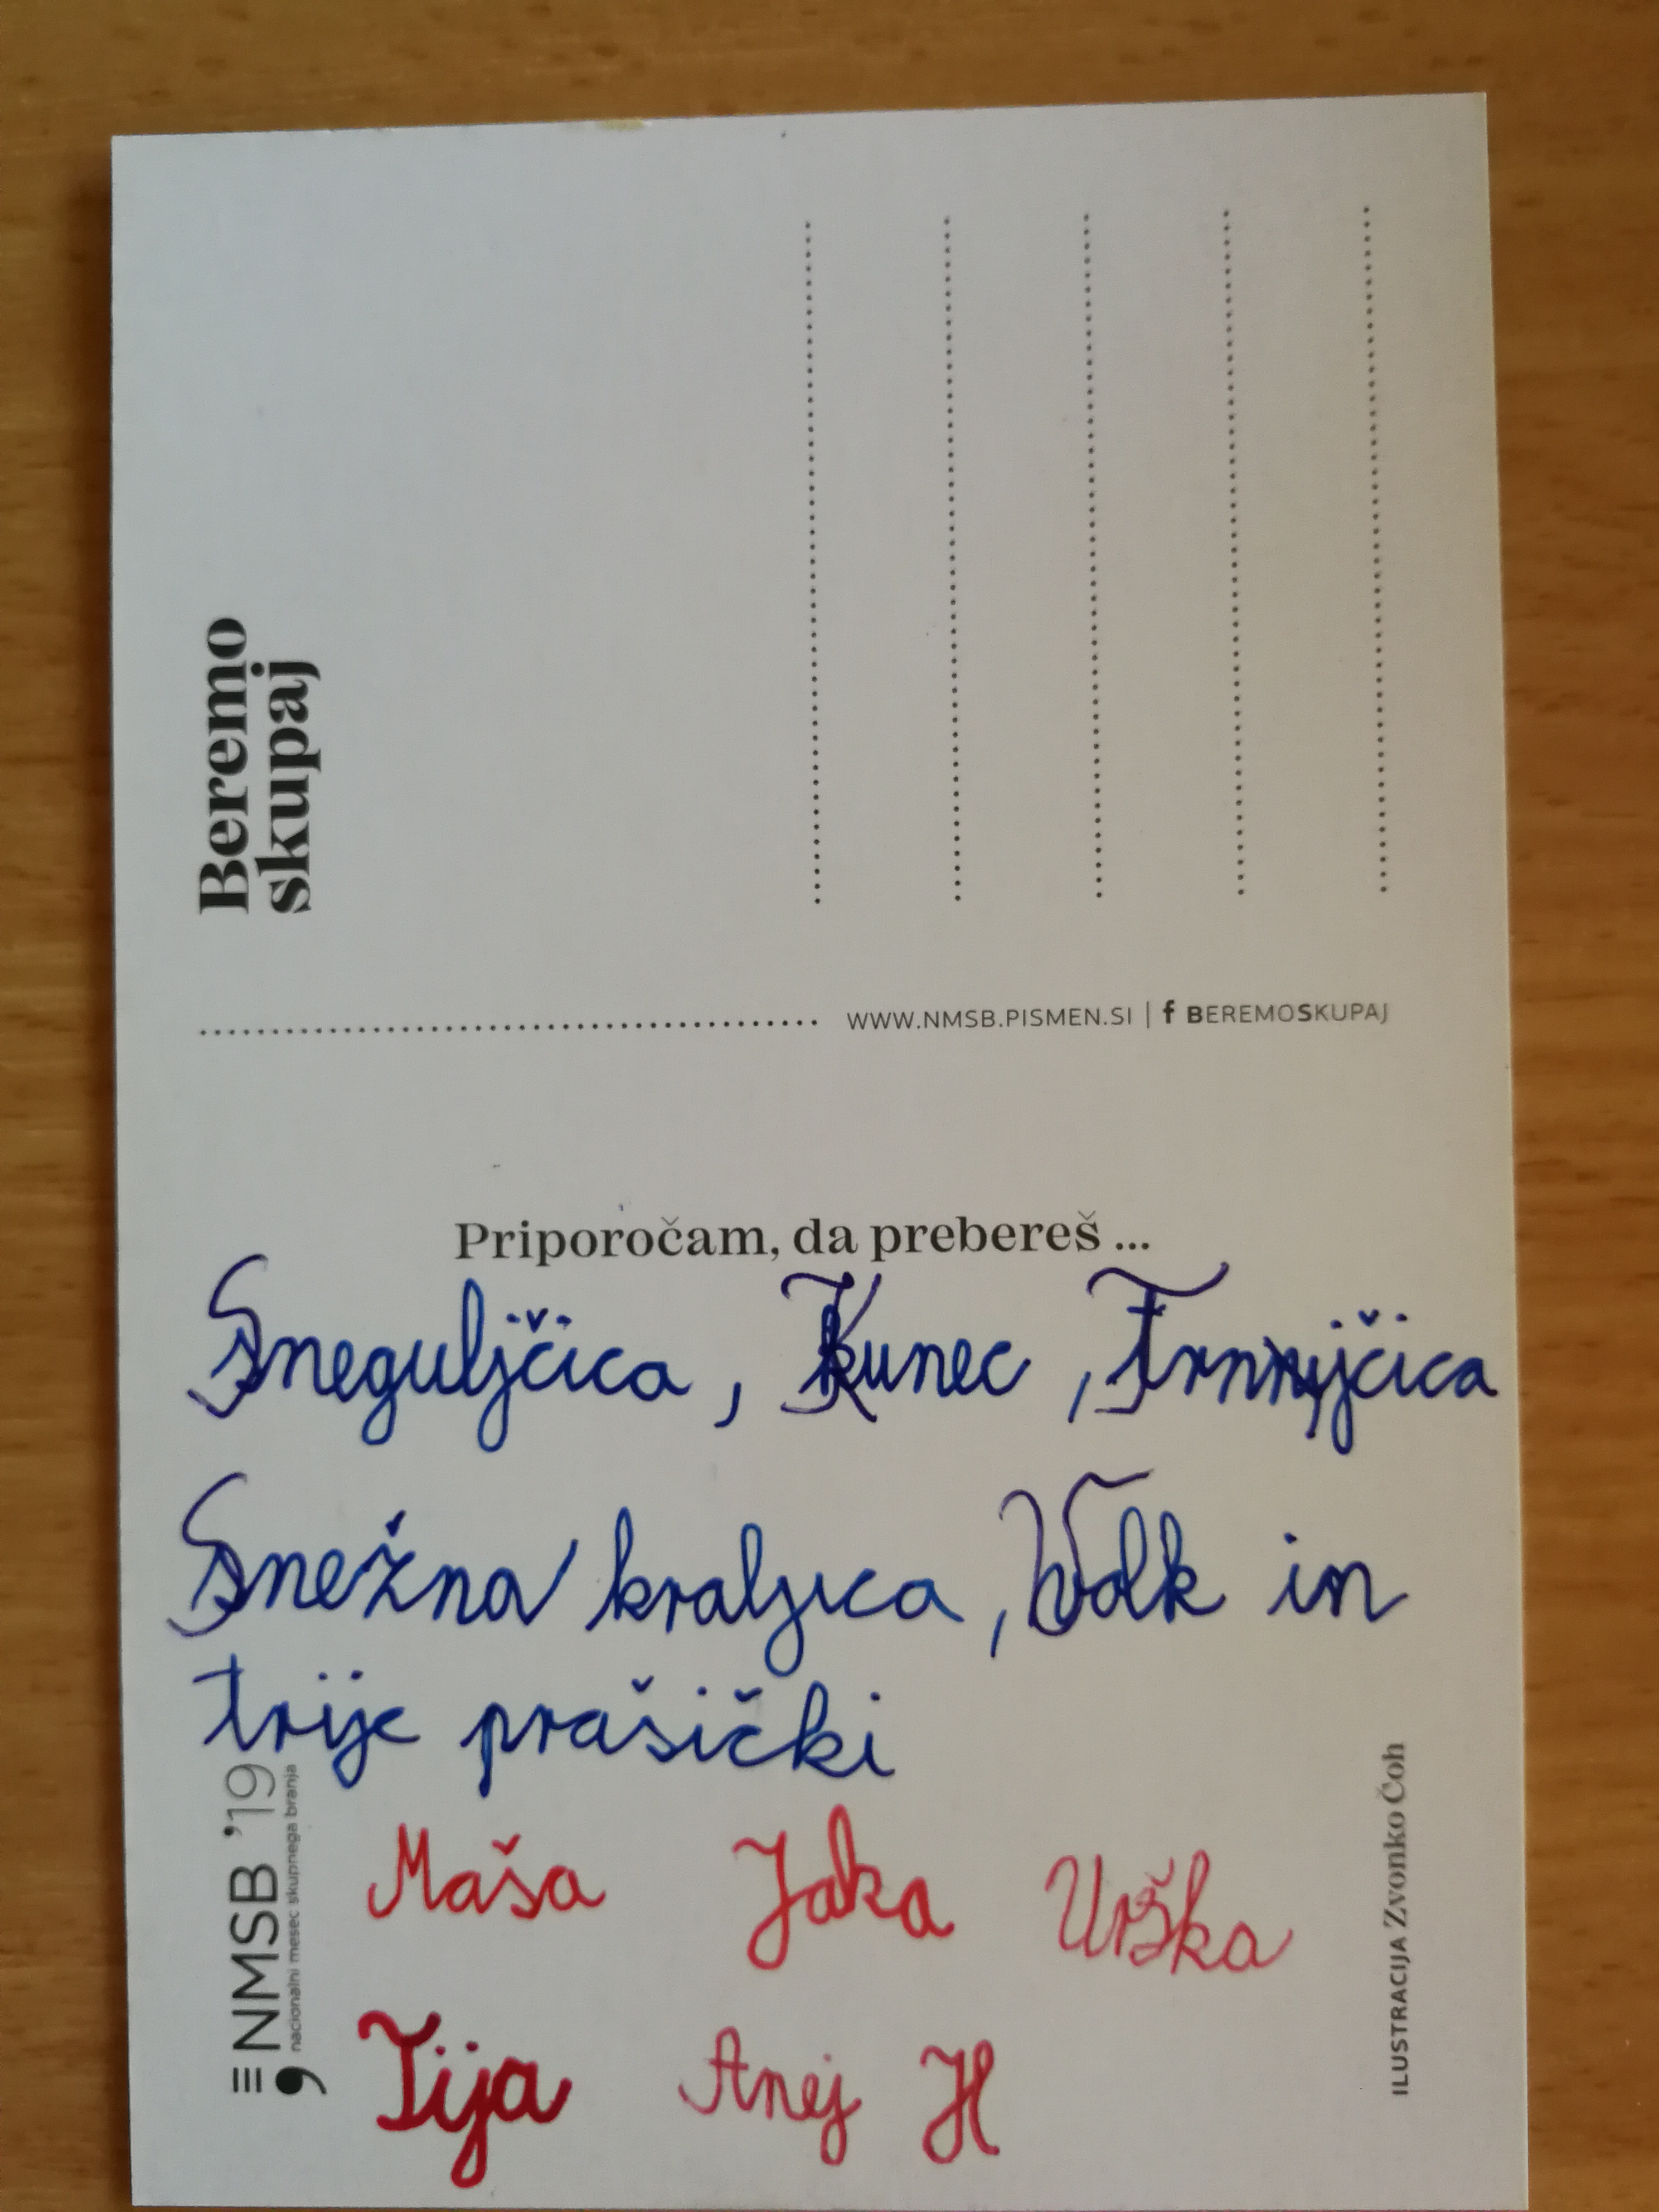 Beremo
skupaj
WWW.NMSB.PISMEN.SI | f BEREMOSKUPAJ
Priporočam, da prebereš ...
Sneguljčica, Kunec, Trnnjčica
Snežna kraljica, Volk in
trije prašički
NMSB '19
nacionalni mesec skupnega branja
Maša Jaka Urška
Tija Anej H
ILUSTRACIJA Zvonko Čoh